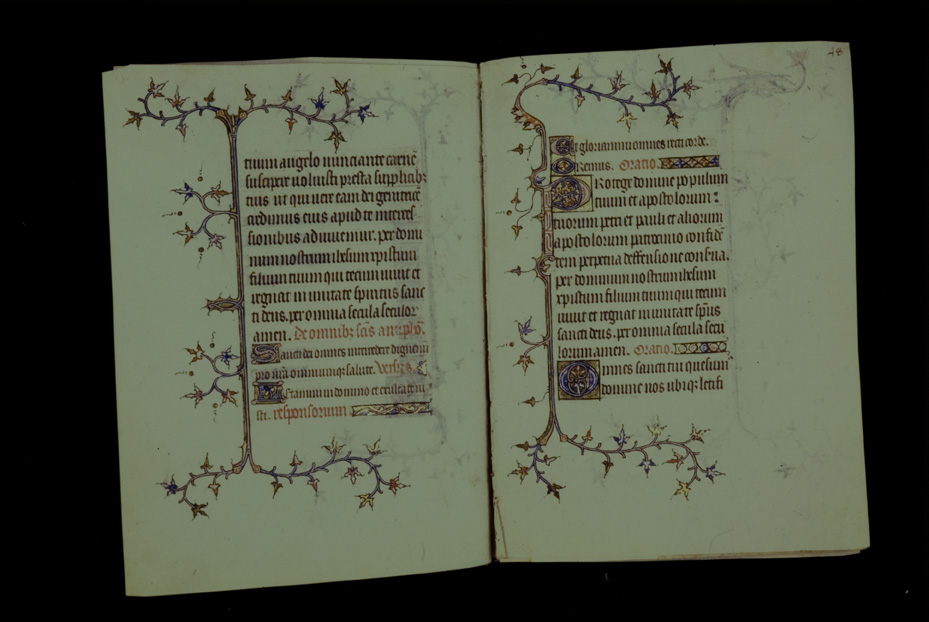 tuum angelo nunciante carnē
suscipere uoluisti presta supplicib;
tuis ut qui uere eam dei genitricē
credimus eius apud te interces
sionibus adiuuemur. per domi
num nostrum ihesum xpistum
filium tuum qui tecum uiuit et
regnat in unitate spiritus sanc
ti deus. per omnia secula seculor
amen. De omnib; sc̄is antiphō.
Sancti dei omnes intercedere dignemi
pro nr̄a omniumq; salute. Versus.
Letamini in domino et exultate iu
sti. responsorium
48
Et gloriamini omnes recti corde.
Oremus. Oratio.
Protege domine populum
tuum et apostolorum
tuorum petri et pauli et aliorum
apostolorum patrocinio confidē
tem perpetua deffensione conserua.
per dominum nostrum ihesum
xpistum filium tuum qui tecum
uiuit et regnat in unitate sp̄us
sancti deus. per omnia secula secu
lorum amen. Oratio.
Omnes sancti tui quesum
domine nos ubiq; letifi